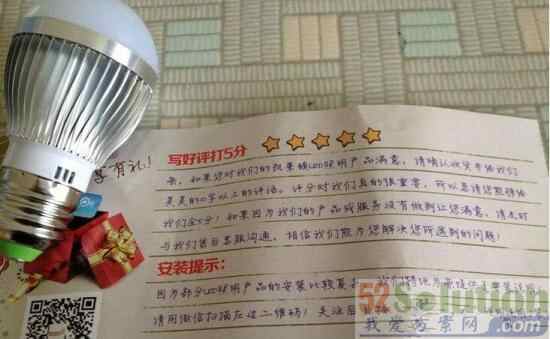 享有礼!
写好评打5分
亲,如果您对我们的效果领LED照明产品满意,请确认收货并给我们
宝贵的20字以上的评论。评分对我们真的很重要,所以恳请您能够给
我们全5分!如果因为我们的产品或服务没有做到让您满意,请及时
与我们售后客服沟通,相信我们能为您解决您所遇到的问题!
安装提示:
因为部分LED照明产品的安装比较复
请用微信扫描左边二维码!关注后
52Solution
我爱方案网.com